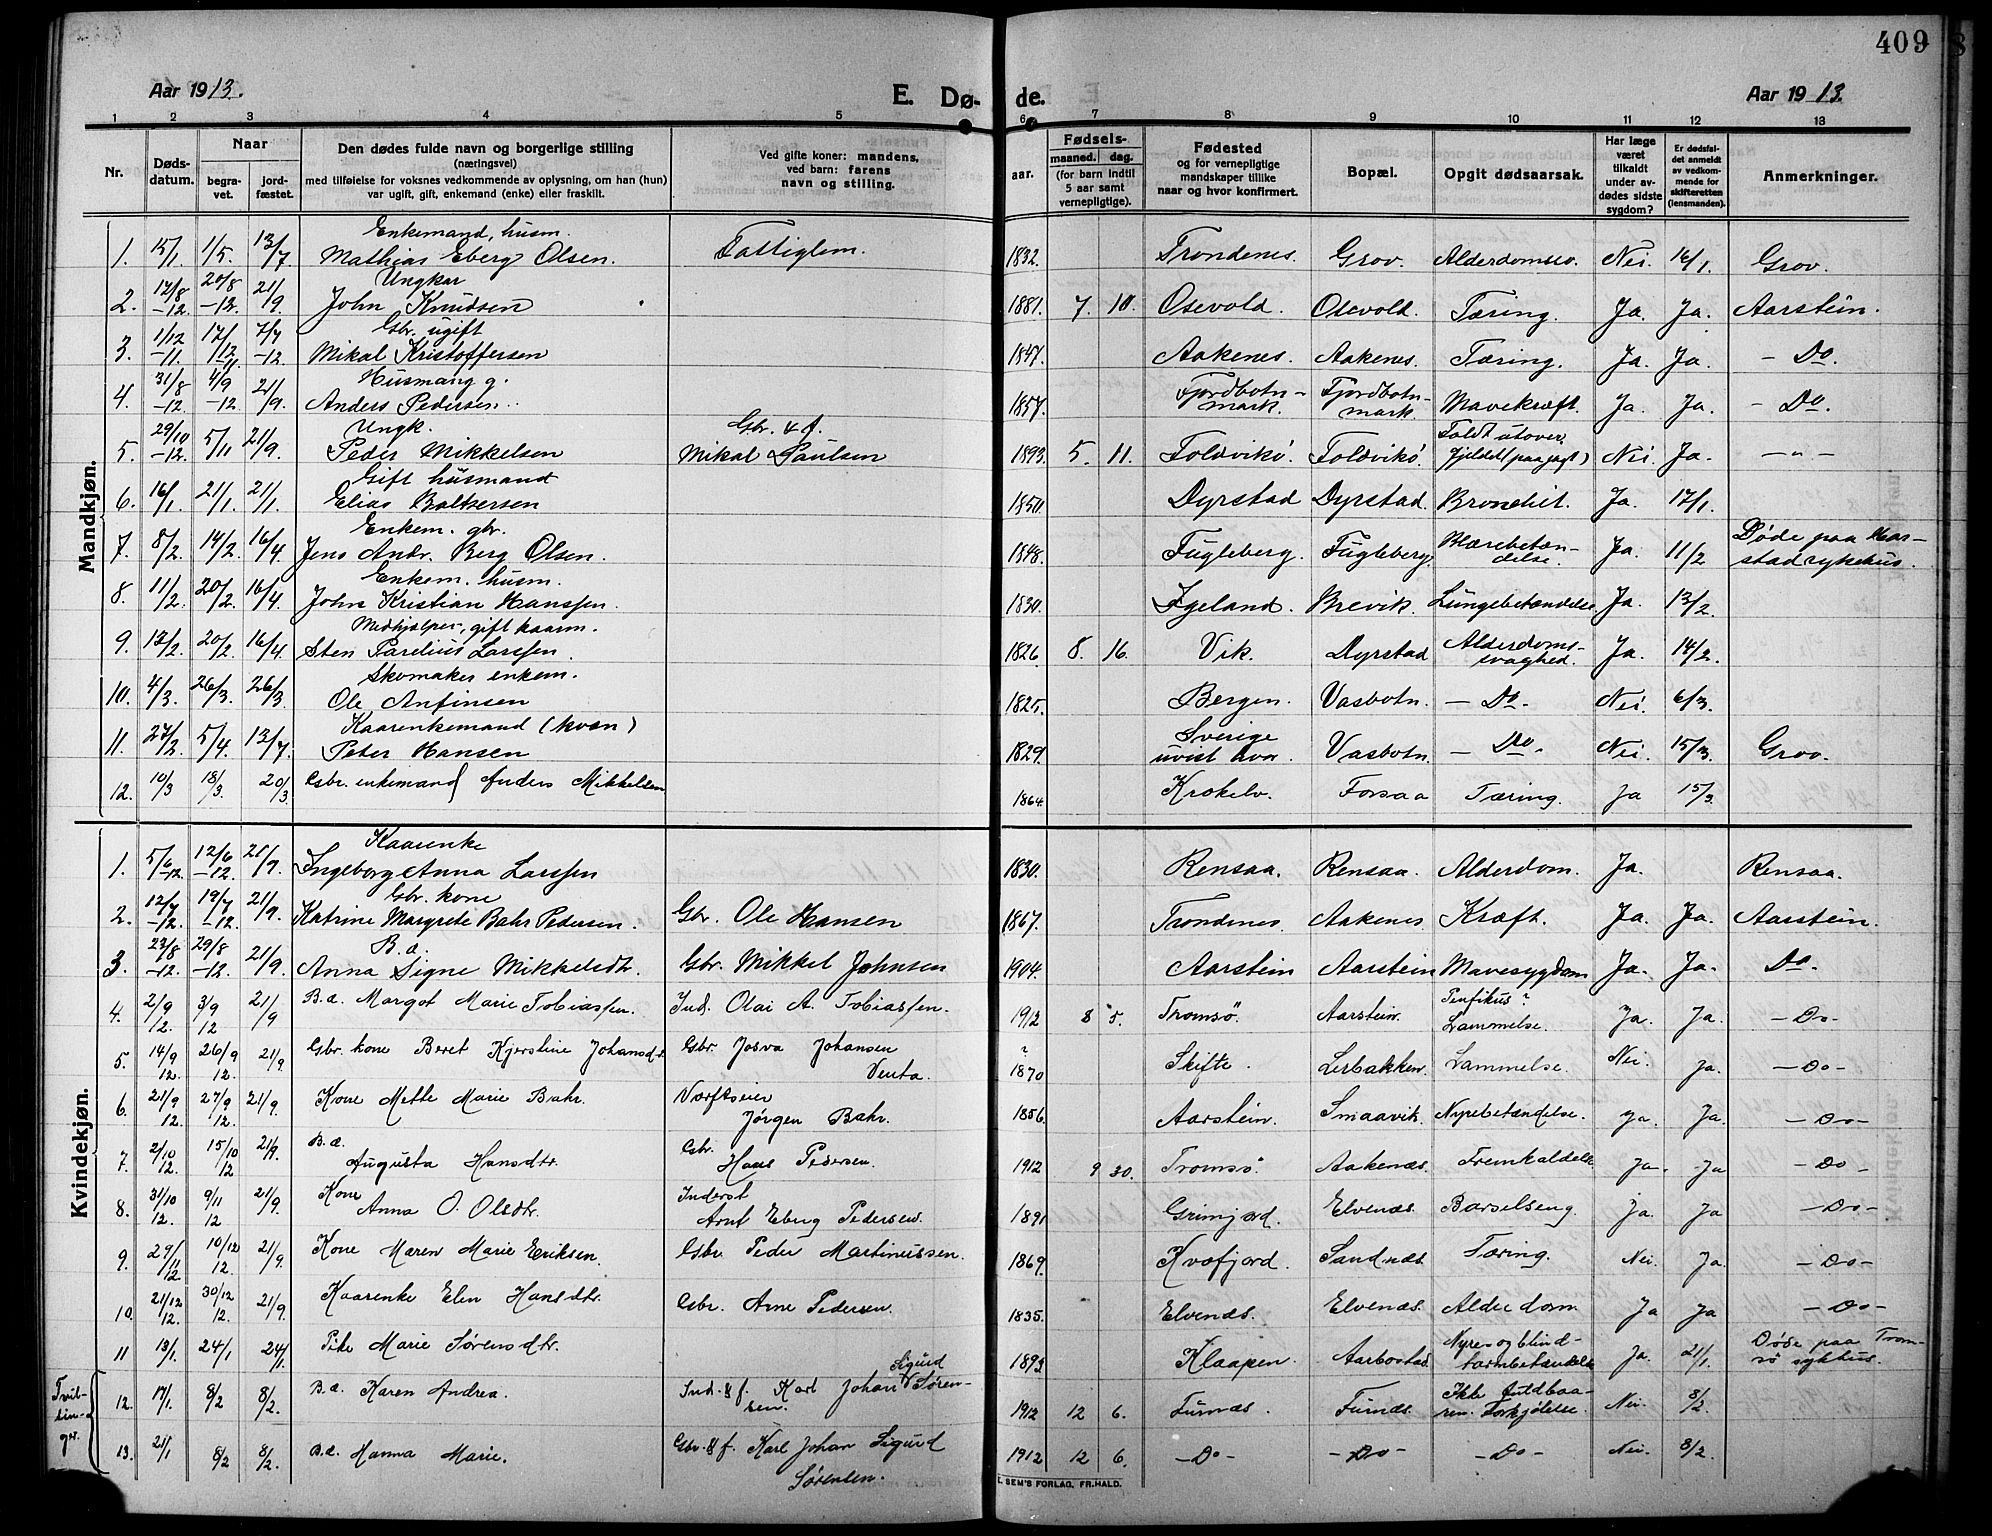 409
Aar 1913.
E. Dø-
de.
Aar 1913.
1 2 3 4 5 6 7 8 9 10 11 12 13
Nr.
Døds-
datum.
Naar
begra-
vet.
jord-
fæstet.
Den dødes fulde navn og borgerlige stilling
(næringsvei)
med tilføielse for voksnes vedkommende av oplysning, om han (hun)
var ugift, gift, enkemand (enke) eller fraskilt.
Ved gifte koner: mandens,
ved barn: farens
navn og stilling.
Fødsels-
aar.
maaned.
dag.
(for barn indtil
5 aar samt
vernepligtige).
Fødested
og for vernepligtige
mandskaper tillike
naar og hvor konfirmert.
Bopæl.
Opgit dødsaarsak.
Har læge
været
tilkaldt
under av-
dødes sidste
sygdom?
Er dødsfal-
det anmeldt
av vedkom-
mende for
skifteretten
(lensmanden).
Anmerkninger.
Mandkjøn.
Enkemand, husm.
1. 15/1. 1/5. 13/7 Mathias Eberg Olsen. Fattiglem. 1832. Trondenes. Grov. Alderdomssv. Nei. 16/1. Grov.
Ungkar
2. 12/8 -12. 20/8 -12. 21/9. John Knudsen 1881. 7. 10. Osevold. Osevold. Tæring. Ja. Ja. Aarstein.
Gbr. ugift
3. 1/12 -11. 17/12 -11. 7/7 -12. Mikal Kristoffersen 1847. Aakenes. Aakenes. Tæring. Ja. Ja - Do.
Husmand g.
4. 31/8 -12. 4/9 -12 21/9. Anders Pedersen. 1857. Fjordbotn-
mark. Fjordbotn-
mark. Mavekræft. Ja. Ja. - Do.
Ungk. Gbr. & f.
5. 29/10 -12. 5/11 21/9. Peder Mikkelsen Mikal Paulsen 1893. 5. 11. Foldvikö. Foldvikö. Faldt utover
fjeldet (paa jagt) Nei Ja. - " -
Gift husmand
6. 16/1. 21/1. 21/1. Elias Baltsersen 1850. Dyrstad Dyrstad. Bronchit. Ja. 17/1.
Enkem. gbr.
7. 8/2. 14/2. 16/4. Jens Andr. Berg Olsen. 1848. Fugleberg. Fugleberg. Blærebetæn-
delse. Ja. 11/2 Døde paa Har-
stad sykehus.
Enkem. husm.
8. 11/2. 20/2. 16/4. John Kristian Hanssen. 1830. Igeland. Brevik. Lungebetændelse Ja. 13/2.
Medhjælper, gift kaarm.
9. 12/2. 20/2. 16/4. Sten Parelius Larssen. 1826. 8. 16. Vik. Dyrstad Alderdoms-
svaghed. Ja. 14/2.
Skomaker enkem.
10. 4/3. 26/3. 26/3. Ole Anfinsen 1825. Bergen. Vasbotn. - Do. Nei. 6/3.
Kaarenkemand (kvæn)
11. 27/2. 5/4. 13/7. Peter Hansen 1829. Sverige
uvist hvor. Vasbotn. - Do. Nei. 15/3. Grov.
12. 10/3 18/3. 20/3. Gbr. enkemand Anders Mikkelsen 1864. Krokelv. Forsaa Tæring. Ja 15/3.
Kvindekjøn.
Kaarenke
1. 5/6 -12. 12/6 -12. 21/9. Ingeborg Anna Larssen 1830. Rensaa. Rensaa. Alderdom. Ja. Rensaa.
Gbr. kone
2. 12/7 -12. 19/7 -12. 21/9. Katrine Margrete Bahr Pedersen. Gbr. Ole Hansen 1867. Trondenes. Aakenes Kræft. Ja. Ja. Aarstein.
B. æ.
3. 23/8 -12. 29/8 -12. 21/9. Anna Signe Mikkelsdtr. Gbr. Mikkel Johnsen 1904. Aarstein Aarstein Mavesygdom Ja. Ja. Do.
4. 2/9 12. 3/9 12 21/9 B. æ. Margot Marie Tobiassen. Ind. Olai A. Tobiassen. 1912 8 5. Tromsö. Aarstein. Penfikus?
Lammelse. Ja. Ja. - Do -
5. 14/9 12. 26/9 12. 21/9. Gbr. kone Beret Kjerstine Johansdtr. Gbr. Josva Johansen
Venta. ?
1870 Skifte. Lerbakken. Lammelse. Nei. Ja. - Do -
6. 21/9 12. 27/9 12. 21/9. Kone Mette Marie Bahr. Værftseier
Jörgen Bahr. 1856. Aarstein. Smaavik. Nyrebetændelse. Ja Ja. - Do -
7. 2/10 12. 15/10 12 21/9. B. æ.
Augusta Hansdtr. Gbr.
Hans Pedersen. 1912 9 30. Tromsø. Aakenæs. Fremkaldelse Ja. Ja - Do -
8. 31/10 12. 9/11 12 21/9. Kone
Anna O. Olsdtr. Inderst
Arnt Eberg Pedersen. 1891 Grimjord. Elvenæs. Barselseng. Ja. Ja - Do -
9. 29/11 12 10/12 12. 21/9. Kone Maren Marie Eriksen. Gbr. Peder Martinussen. 1869. Kvæfjord. Sandnæs. Tæring. Nei. Ja. - Do -
10. 21/12 12. 30/12 12. 21/9. Kaarenke Elen Hansdtr. Gbr. Arne Pedersen. 1835. Elvenæs. Elvenæs. Alderdom Ja Ja - Do -
11 13/1. 24/1 24/1. Pike Marie Sørensdtr. 1893. Klaapen. Aarbostad Nyre- og blind-
tarmbetændelse Ja. 21/1. Døde paa Trom-
sö sykhus.
Tvil-
lin-
ger.
12. 17/1. 8/2 8/2. B. æ. Karen Andrea. Ind. & f. Karl Johan Sigurd Søren-
sen. 1912 12 6. Furnæs. Furnæs. Ikke fuldbaa-
ren. Forkjölelse. Nei. 8/2.
13. 21/1 8/2 8/2. B. æ. Hanna Marie. Gbr. & f. Karl Johan Sigurd
Sørensen. 1912 12 6. - Do - - Do - - Do - Nei. 8/2.
SEM'S FORLAG, FR.HALD.